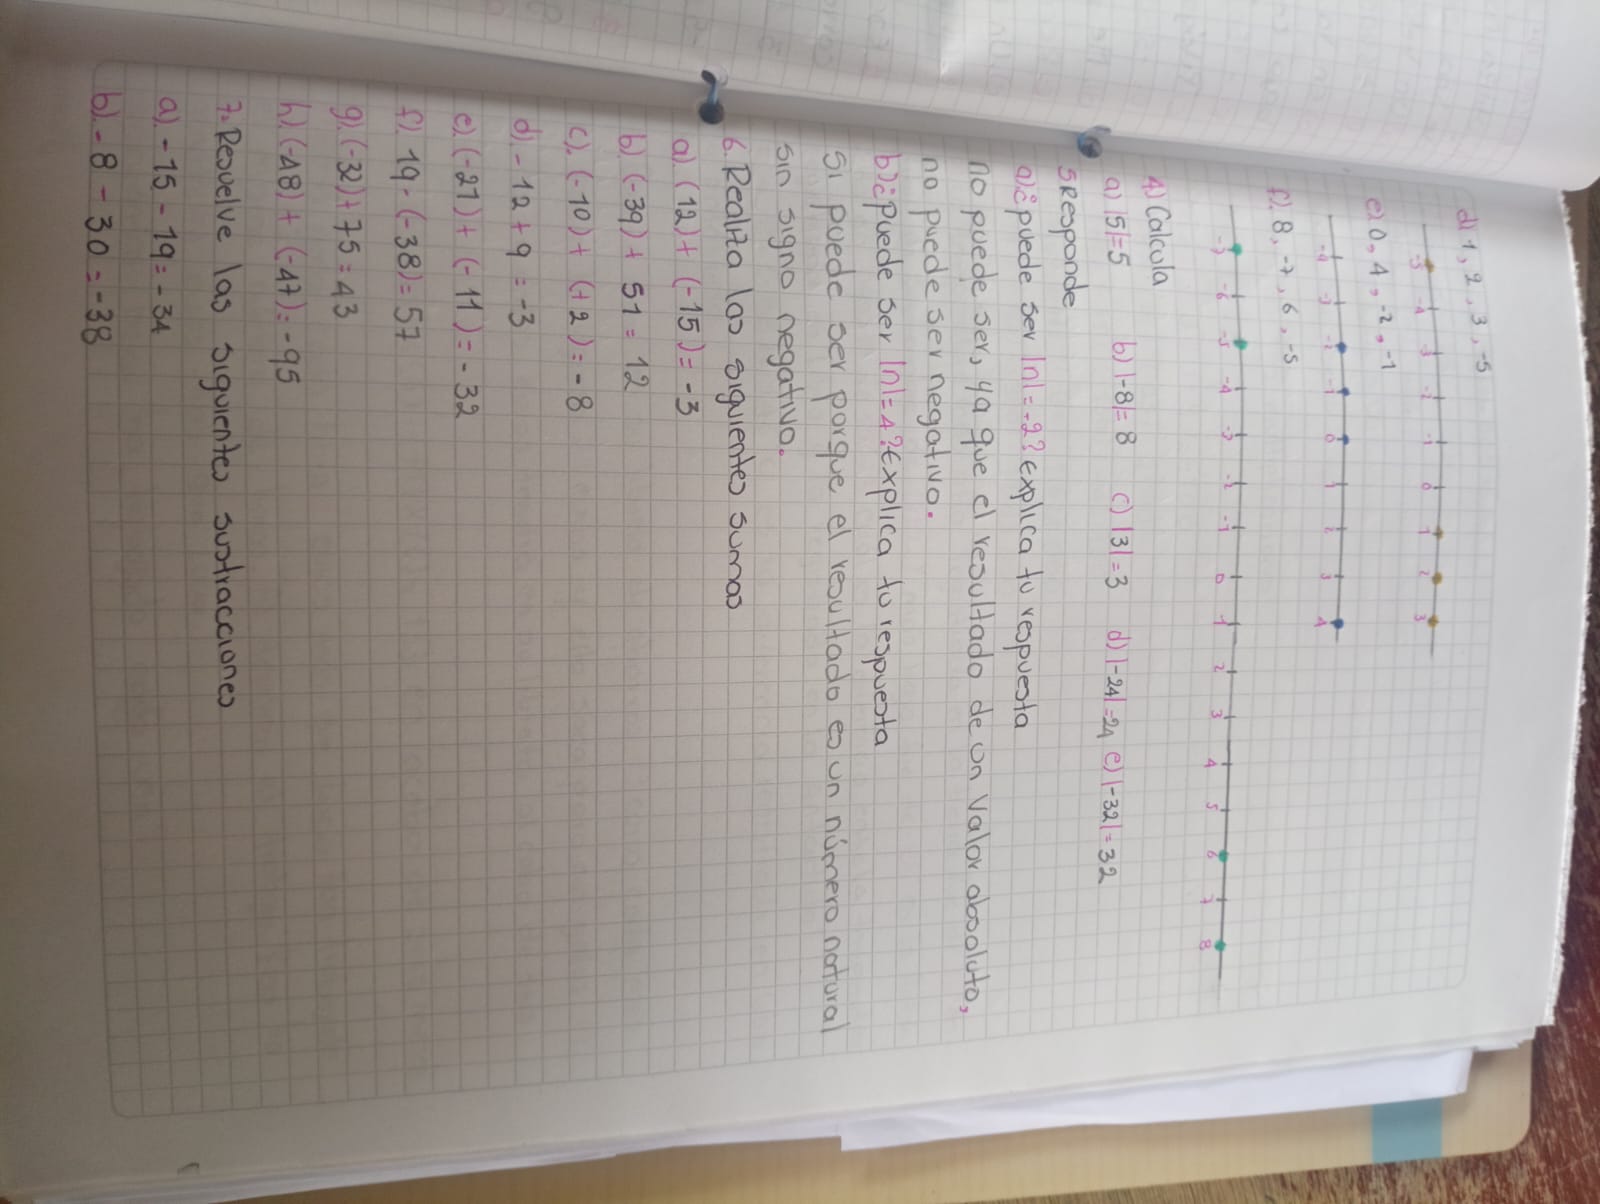 d) 1, 2, 3, -5
-5 -4 -3 -2 -1 0 1 2 3
e) 0, 4, -2, -1
-4 -3 -2 -1 0 1 2 3 4
f) 8, -7, 6, -5
-7 -6 -5 -4 -3 -2 -1 0 1 2 3 4 5 6 7 8
4) Calcula
a) |5|=5 b) |-8|= 8 c) |3|=3 d) |-24|=24 e) |-32|=32
5 Responde
a) ¿puede ser |n|=-2? explica tu respuesta
no puede ser, ya que el resultado de un Valor absoluto,
no puede ser negativo.
b) ¿puede ser |n|=4? explica tu respuesta
Si puede ser porque el resultado es un número natural
sin signo negativo.
6. Realiza las siguientes sumas
a) (12) + (-15) = -3
b) (-39) + 51 = 12
c). (-10) + (+2) = -8
d) -12 + 9 = -3
e). (-21) + (-11) = -32
f) 19 - (-38) = 57
g). (-32) + 75 = 43
h) (-48) + (-47) = -95
7. Resuelve las siguientes sustracciones
a). -15 - 19 = -34
b). -8 - 30 = -38